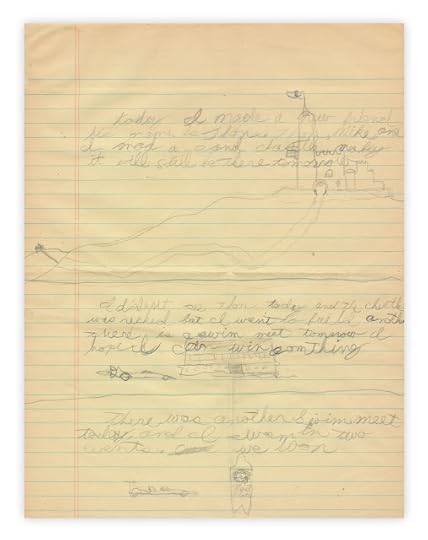 today I made a new friend
his name is
I mad a sand chastle maby
it will still be there tomorrow
I didn't see Than today and the chastle
was recked but I went to
there is a swim meet tomorrow I
hope I can win somthing
There was another Swim meet
today and I swam in two
events. we won